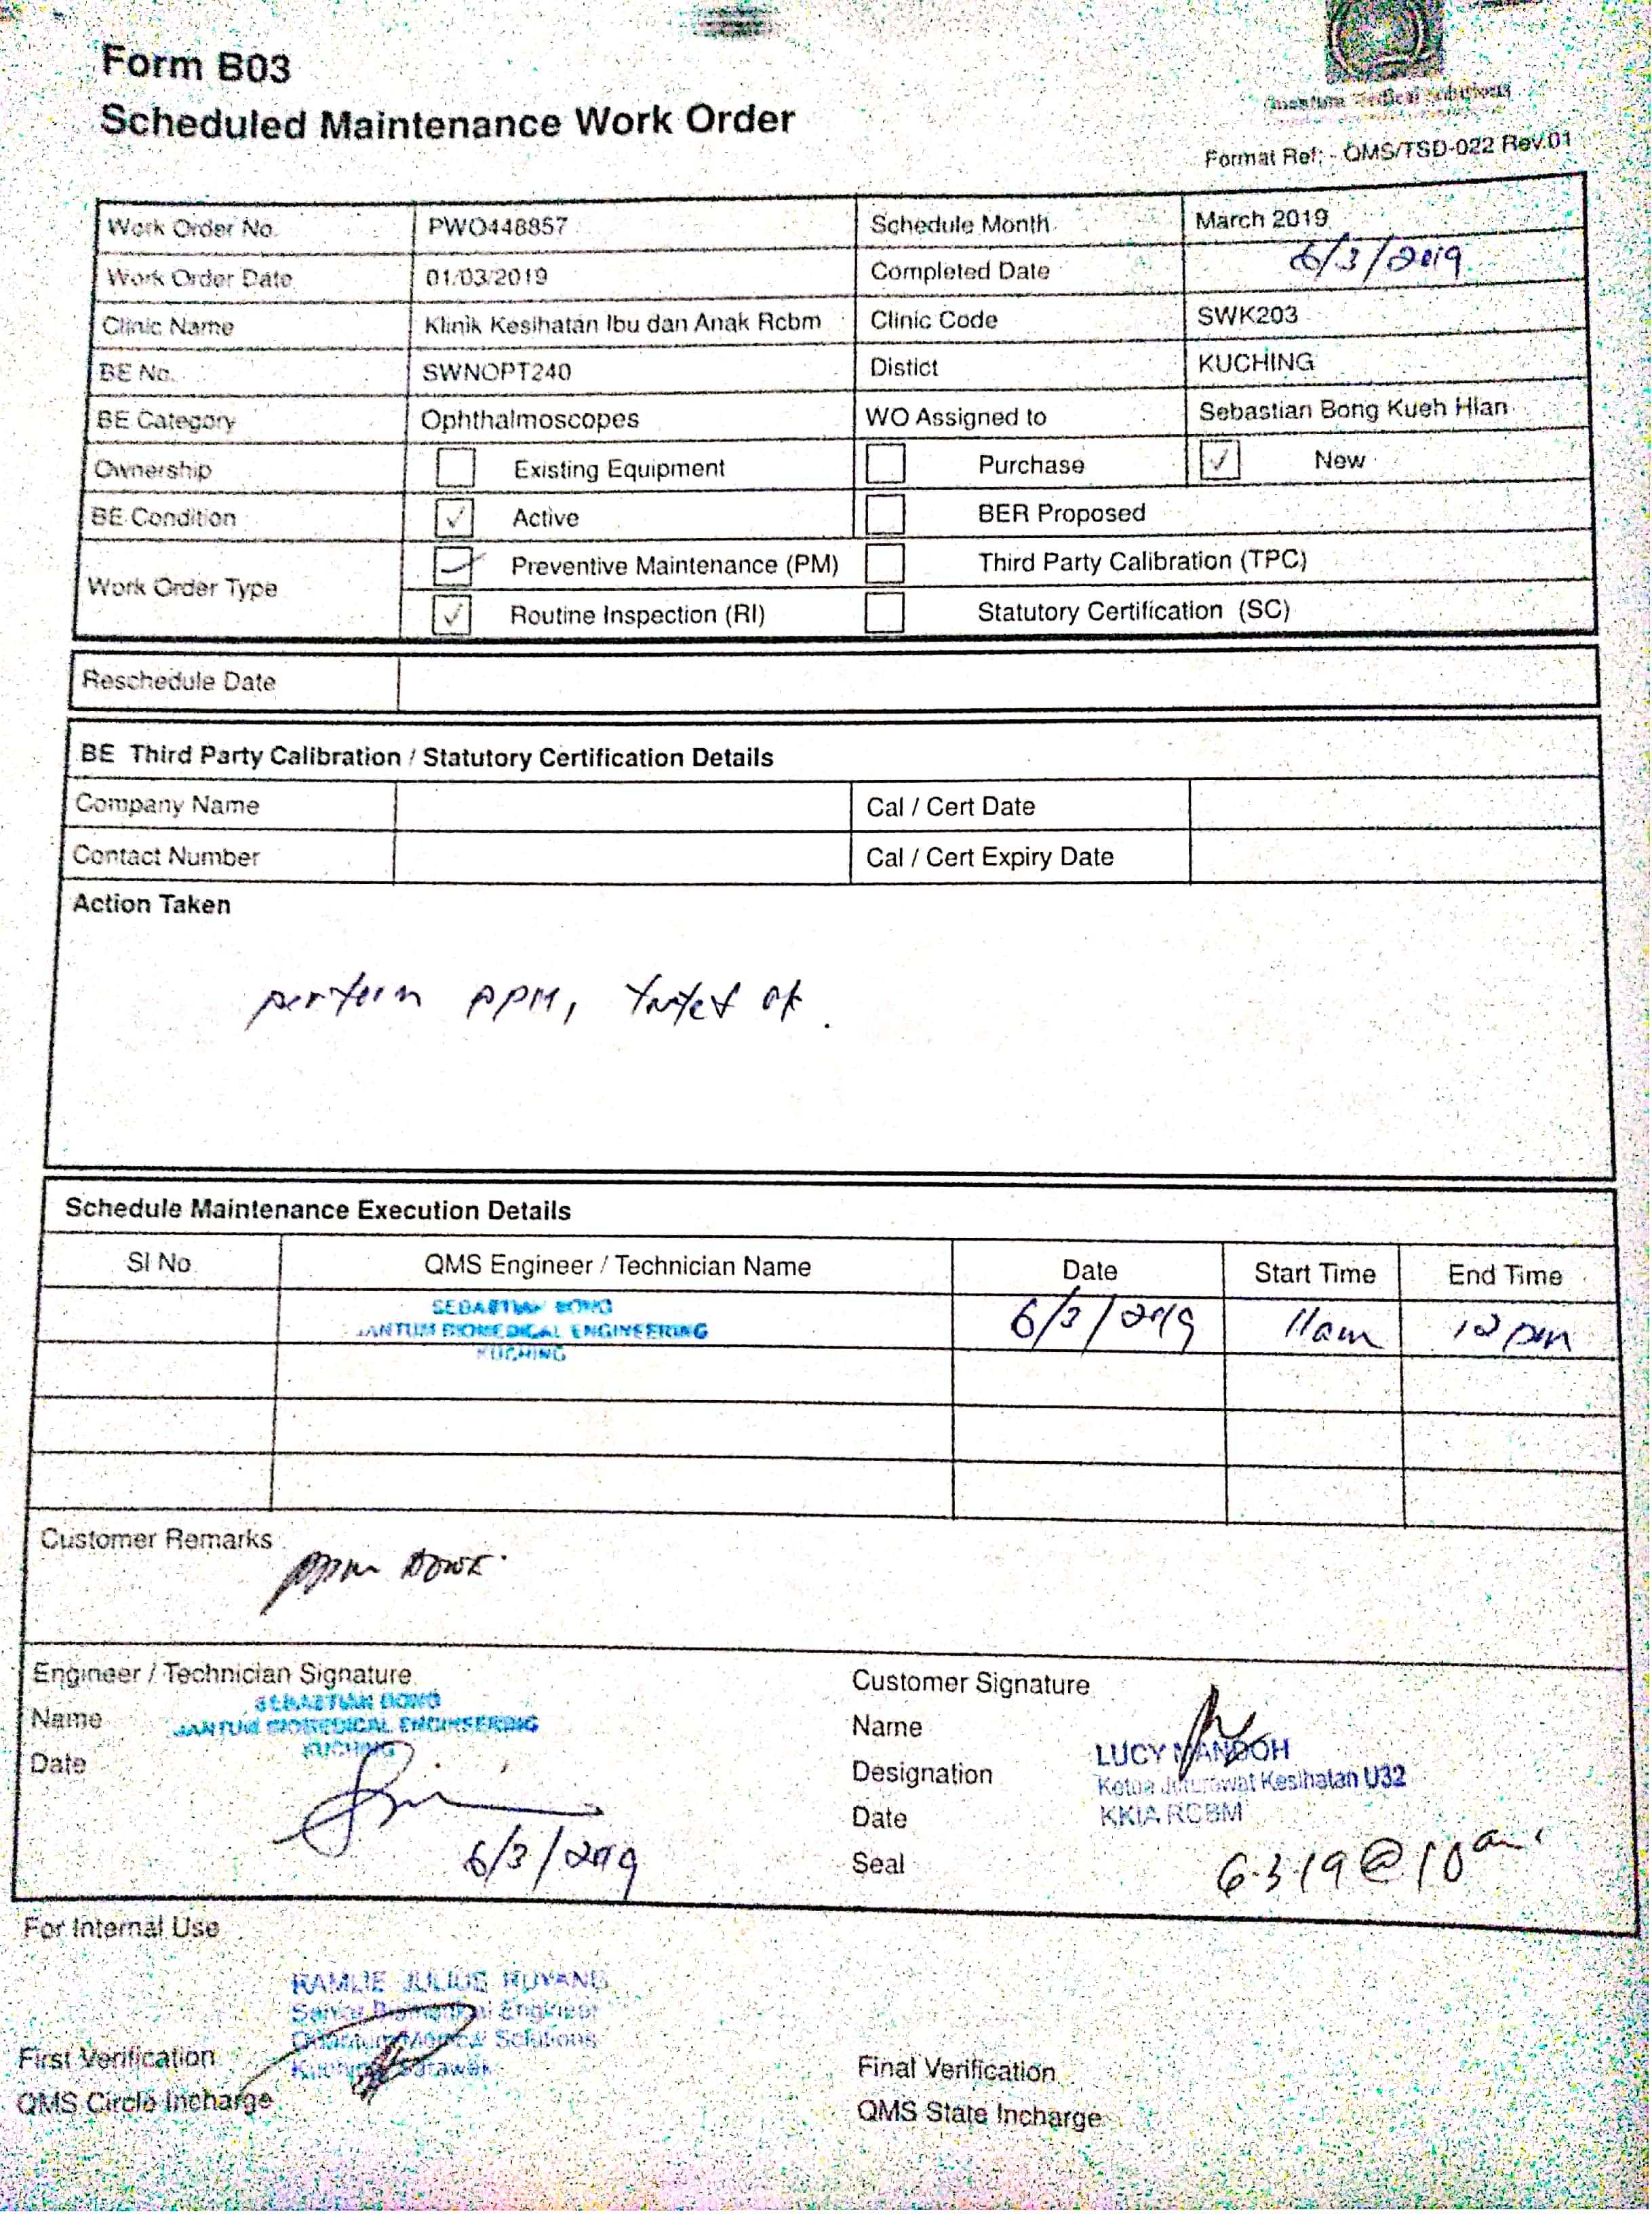 Form B03
Scheduled Maintenance Work Order
Quantum Medical Solutions
Format Ref; - QMS/TSD-022 Rev.01
Work Order No. PWO448857 Schedule Month March 2019
Work Order Date 01/03/2019 Completed Date 6/3/2019
Clinic Name Klinik Kesihatan Ibu dan Anak Rcbm Clinic Code SWK203
BE No. SWNOPT240 Distict KUCHING
BE Category Ophthalmoscopes WO Assigned to Sebastian Bong Kueh Hian
Ownership Existing Equipment Purchase ✓ New
BE Condition ✓ Active BER Proposed
Work Order Type ✓ Preventive Maintenance (PM) Third Party Calibration (TPC)
✓ Routine Inspection (RI) Statutory Certification (SC)
Reschedule Date
BE Third Party Calibration / Statutory Certification Details
Company Name Cal / Cert Date
Contact Number Cal / Cert Expiry Date
Action Taken
perform PPM, tested ok.
Schedule Maintenance Execution Details
Sl No QMS Engineer / Technician Name Date Start Time End Time
SEBASTIAN BONG 6/3/2019 11am 12pm
ANTUM BIOMEDICAL ENGINEERING
KUCHING
Customer Remarks
ppm DONE.
Engineer / Technician Signature Customer Signature
SEBASTIAN BONG
Name ANTUM BIOMEDICAL ENGINEERING Name
KUCHING
Date LUCY MANDOH
Designation Ketua Jururawat Kesihatan U32
Date KKIA RCBM
6/3/2019 Seal 6.3.19 @ 10am
For Internal Use
RAMLIE JULIUS RUYANG
Senior Biomedical Engineer
Quantum Medical Solutions
First Verification Kuching Sarawak Final Verification
QMS Circle Incharge QMS State Incharge